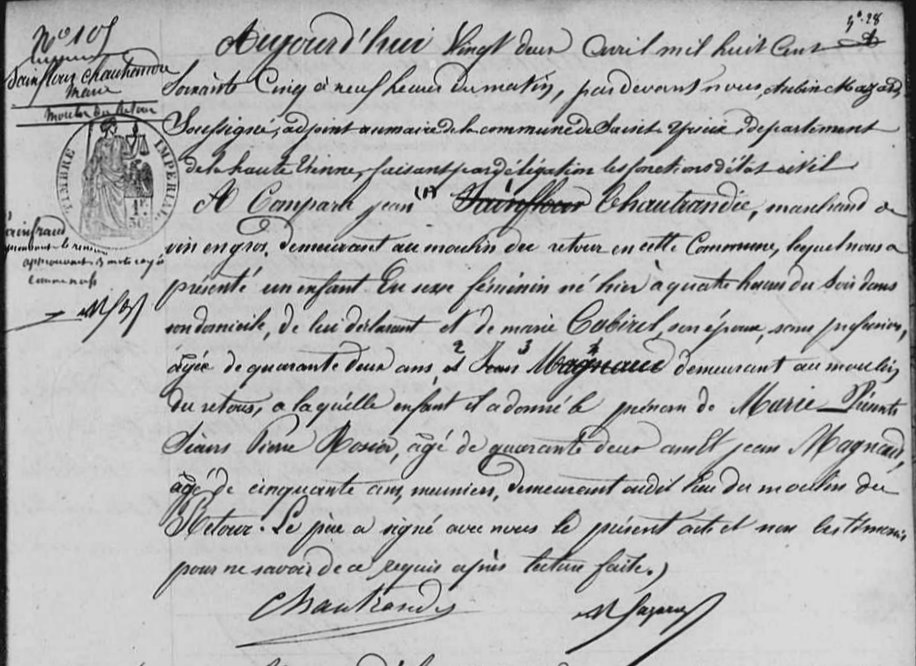 N° 105
Sainflour Chautrandie
Marie
Moulin du Retour
TIMBRE IMPERIAL
1 F.
50 C.
f° 28
Aujourd'hui Vingt deux Avril mil huit Cent
Soixante Cinq à neuf heures du matin, pardevant nous, Aubin Mazard,
Soussigné, adjoint au maire de la commune de Saint Yrieix, département
de la haute Vienne, faisant par délégation les fonctions d'état civil
A Comparu jean (1) Sainflour Chautrandie, marchand de
vin en gros, demeurant au moulin du retour en cette Commune, lequel nous a
présenté un enfant Du sexe féminin né hier à quatre heures du Soir dans
son domicile, de lui déclarant et de marie Cabirol, son épouse, sans profession,
âgée de quarante deux ans, et Jean Magnaud demeurant au moulin
du retour, a laquelle enfant il a donné le prénom de Marie Présents
Sieurs Pierre Rosier, âgé de quarante deux ans Et jean Magnaud,
âgé de cinquante ans, meuniers, demeurant audit lieu du moulin du
Retour. Le père a signé avec nous le présent acte et non les témoins
pour ne savoir de ce requis après lecture faite.
approuvant 3 mots rayés
comme nuls
Chautrandie